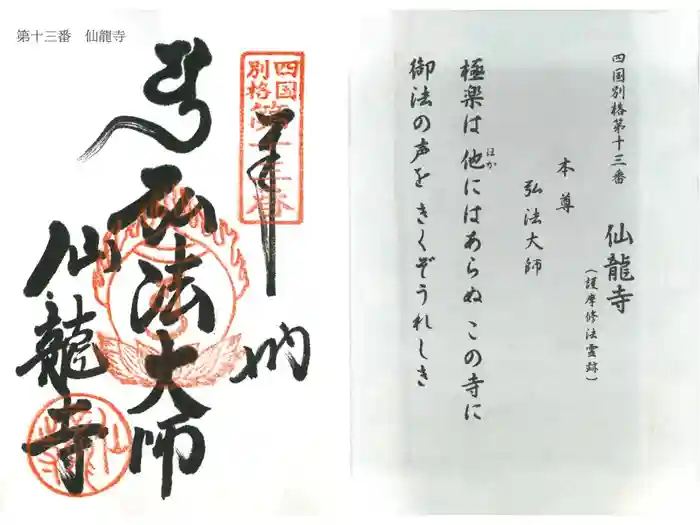 第十三番 仙龍寺
四国
別格
第十三番
奉
納
弘法大師
仙龍寺
四国別格第十三番
仙龍寺
(護摩修法霊跡)
本尊
弘法大師
極楽は他にはあらぬこの寺に
ほか
御法の声をきくぞうれしき